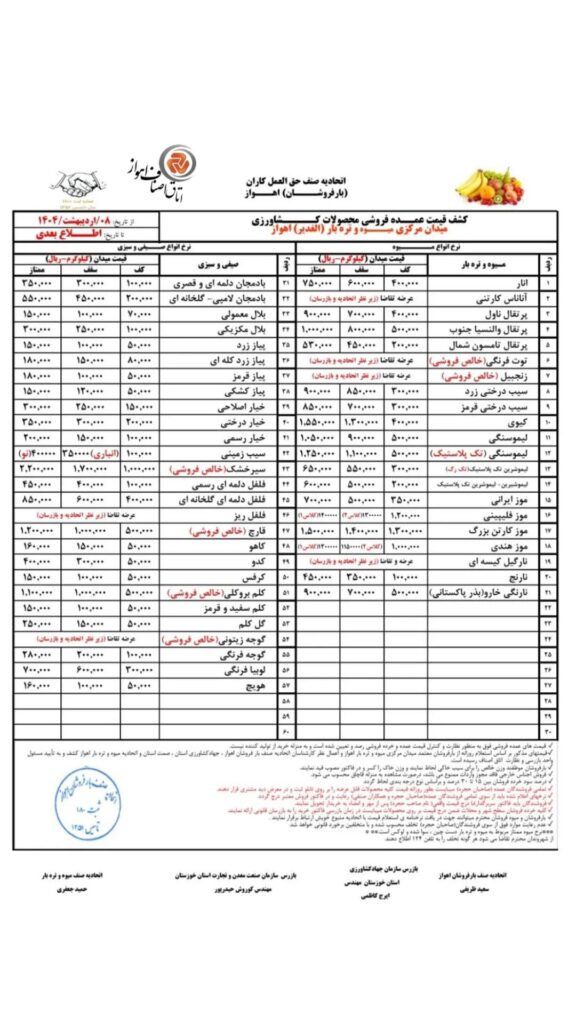 اتاق اصناف اهواز
اتحادیه صنف حق العمل کاران
(بارفروشان) اهواز
کشف قیمت عمده فروشی محصولات کشاورزی
میدان مرکزی میوه و تره بار (الغدیر) اهواز
از تاریخ: ۰۸/اردیبهشت/۱۴۰۴
تا تاریخ: اطلاع بعدی
نرخ انواع میوه
ردیف میوه و تره بار قیمت میدان (کیلوگرم-ریال) کف سقف ممتاز
۱ انار ۴۰۰,۰۰۰ ۶۰۰,۰۰۰ ۷۵۰,۰۰۰
۲ آناناس کارتنی عرضه تقاضا (زیر نظر اتحادیه و بازرسان)
۳ پرتقال ناول ۴۰۰,۰۰۰ ۷۰۰,۰۰۰ ۹۰۰,۰۰۰
۴ پرتقال والنسیا جنوب ۵۰۰,۰۰۰ ۸۰۰,۰۰۰ ۱,۰۰۰,۰۰۰
۵ پرتقال تامسون شمال ۲۰۰,۰۰۰ ۴۵۰,۰۰۰ ۵۳۰,۰۰۰
۶ توت فرنگی (خالص فروشی) عرضه تقاضا (زیر نظر اتحادیه و بازرسان)
۷ زنجبیل (خالص فروشی) عرضه تقاضا (زیر نظر اتحادیه و بازرسان)
۸ سیب درختی زرد ۳۰۰,۰۰۰ ۸۵۰,۰۰۰ ۹۰۰,۰۰۰
۹ سیب درختی قرمز ۳۰۰,۰۰۰ ۷۰۰,۰۰۰ ۸۵۰,۰۰۰
۱۰ کیوی ۴۰۰,۰۰۰ ۱,۳۰۰,۰۰۰ ۱,۵۵۰,۰۰۰
۱۱ لیموسنگی ۵۰۰,۰۰۰ ۹۰۰,۰۰۰ ۱,۰۵۰,۰۰۰
۱۲ لیموسنگی (تک پلاستیک) ۵۰۰,۰۰۰ ۱,۱۰۰,۰۰۰ ۱,۲۵۰,۰۰۰
۱۳ لیموشیرین تک پلاستیک (تک رگ) ۳۰۰,۰۰۰ ۵۵۰,۰۰۰ ۶۵۰,۰۰۰
۱۴ لیموشیرین - لیموشیرین تک پلاستیک ۲۰۰,۰۰۰ ۵۰۰,۰۰۰ ۶۰۰,۰۰۰
۱۵ موز ایرانی ۳۵۰,۰۰۰ ۵۰۰,۰۰۰ ۷۰۰,۰۰۰
۱۶ موز فلیپینی ۱,۲۰۰,۰۰۰ ۱۳۰۰۰۰۰(کلاس۲) ۱۴۰۰۰۰۰(کلاس۱)
۱۷ موز کارتن بزرگ ۱,۳۰۰,۰۰۰ ۱,۴۰۰,۰۰۰ ۱,۵۰۰,۰۰۰
۱۸ موز هندی ۱,۰۰۰,۰۰۰ ۱۱۵۰۰۰۰(کلاس۲) ۱۲۰۰۰۰۰(کلاس۱)
۱۹ نارگیل کیسه ای عرضه و تقاضا (زیر نظر اتحادیه و بازرسان)
۲۰ نارنج ۱۰۰,۰۰۰ ۳۵۰,۰۰۰ ۴۵۰,۰۰۰
۲۱ نارنگی خارو(بذر پاکستانی) ۵۰۰,۰۰۰ ۷۰۰,۰۰۰ ۹۰۰,۰۰۰
۲۲
۲۳
۲۴
۲۵
۲۶
۲۷
۲۸
۲۹
۳۰
نرخ انواع صیفی و سبزی
ردیف صیفی و سبزی قیمت میدان (کیلوگرم-ریال) کف سقف ممتاز
۳۱ بادمجان دلمه ای و قصری ۱۰۰,۰۰۰ ۳۰۰,۰۰۰ ۳۵۰,۰۰۰
۳۲ بادمجان لامپی- گلخانه ای ۲۰۰,۰۰۰ ۴۵۰,۰۰۰ ۵۵۰,۰۰۰
۳۳ بلال معمولی ۷۰,۰۰۰ ۱۰۰,۰۰۰ ۱۵۰,۰۰۰
۳۴ بلال مکزیکی ۱۰۰,۰۰۰ ۲۵۰,۰۰۰ ۳۰۰,۰۰۰
۳۵ پیاز زرد ۵۰,۰۰۰ ۱۰۰,۰۰۰ ۱۵۰,۰۰۰
۳۶ پیاز زرد کله ای ۸۰,۰۰۰ ۱۵۰,۰۰۰ ۱۸۰,۰۰۰
۳۷ پیاز قرمز ۵۰,۰۰۰ ۱۰۰,۰۰۰ ۱۸۰,۰۰۰
۳۸ پیاز کشکی ۵۰,۰۰۰ ۱۲۰,۰۰۰ ۱۵۰,۰۰۰
۳۹ خیار اصلاحی ۱۵۰,۰۰۰ ۲۵۰,۰۰۰ ۳۰۰,۰۰۰
۴۰ خیار درختی ۲۰۰,۰۰۰ ۳۰۰,۰۰۰ ۳۵۰,۰۰۰
۴۱ خیار رسمی ۱۰۰,۰۰۰ ۱۵۰,۰۰۰ ۲۰۰,۰۰۰
۴۲ سیب زمینی ۱۰۰,۰۰۰ ۳۵۰۰۰۰(انباری) ۴۰۰۰۰۰(نو)
۴۳ سیرخشک(خالص فروشی) ۱,۰۰۰,۰۰۰ ۱,۷۰۰,۰۰۰ ۲,۲۰۰,۰۰۰
۴۴ فلفل دلمه ای رسمی ۱۰۰,۰۰۰ ۴۰۰,۰۰۰ ۴۵۰,۰۰۰
۴۵ فلفل دلمه ای گلخانه ای ۴۰۰,۰۰۰ ۶۰۰,۰۰۰ ۸۵۰,۰۰۰
۴۶ فلفل ریز عرضه تقاضا (زیر نظر اتحادیه و بازرسان)
۴۷ قارچ (خالص فروشی) ۵۰۰,۰۰۰ ۱,۰۰۰,۰۰۰ ۱,۲۰۰,۰۰۰
۴۸ کاهو ۵۰,۰۰۰ ۱۵۰,۰۰۰ ۱۶۰,۰۰۰
۴۹ کدو ۵۰,۰۰۰ ۳۰۰,۰۰۰ ۴۰۰,۰۰۰
۵۰ کرفس ۵۰,۰۰۰ ۱۰۰,۰۰۰ ۱۵۰,۰۰۰
۵۱ کلم بروکلی(خالص فروشی) ۵۰۰,۰۰۰ ۱,۰۰۰,۰۰۰ ۱,۱۰۰,۰۰۰
۵۲ کلم سفید و قرمز ۵۰,۰۰۰ ۱۰۰,۰۰۰ ۱۵۰,۰۰۰
۵۳ گل کلم ۵۰,۰۰۰ ۱۵۰,۰۰۰ ۲۵۰,۰۰۰
۵۴ گوجه زیتونی(خالص فروشی) عرضه تقاضا (زیر نظر اتحادیه و بازرسان)
۵۵ گوجه فرنگی ۱۰۰,۰۰۰ ۲۰۰,۰۰۰ ۲۸۰,۰۰۰
۵۶ لوبیا فرنگی ۳۰۰,۰۰۰ ۶۰۰,۰۰۰ ۷۰۰,۰۰۰
۵۷ هویج ۵۰,۰۰۰ ۱۰۰,۰۰۰ ۱۶۰,۰۰۰
۵۸
۵۹
۶۰
قیمت های عمده فروشی فوق به منظور نظارت و کنترل قیمت عمده و خرده فروشی رصد و تعیین شده است و به منزله خرید از تولید کننده نیست.
واحد بازرسی و نظارت اتاق اصناف رسیده است.
بارفروشان موظفند وزن خالص را برای سیب خاکی لحاظ نمایند و وزن خاک را کسر و در فاکتور مصوب قید نمایند.
فروش اجناس خارجی فاقد مجوز واردات ممنوع می باشد، درصورت مشاهده به منزله قاچاق محسوب می شود.
از شهروندان محترم تقاضا می شود هر گونه گله را به تلفن ۱۲۴ اطلاع دهند.
اتحادیه صنف بارفروشان اهواز
سعید ظریفی
بازرس سازمان جهادکشاورزی
استان خوزستان مهندس
ایرج کاظمی
بازرس سازمان صنعت معدن و تجارت استان خوزستان
مهندس کوروش حیدرپور
اتحادیه صنف میوه و تره بار
حمید جعفری